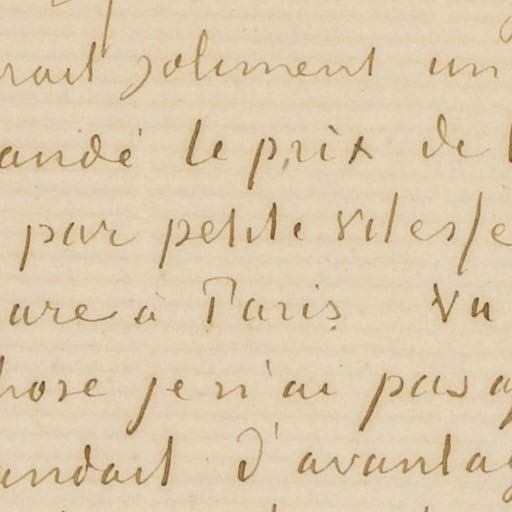 rait joliment un
andé le prix de
par petite vitesse
are à Paris Vu
hose je n'ai pas
andait d'avantag